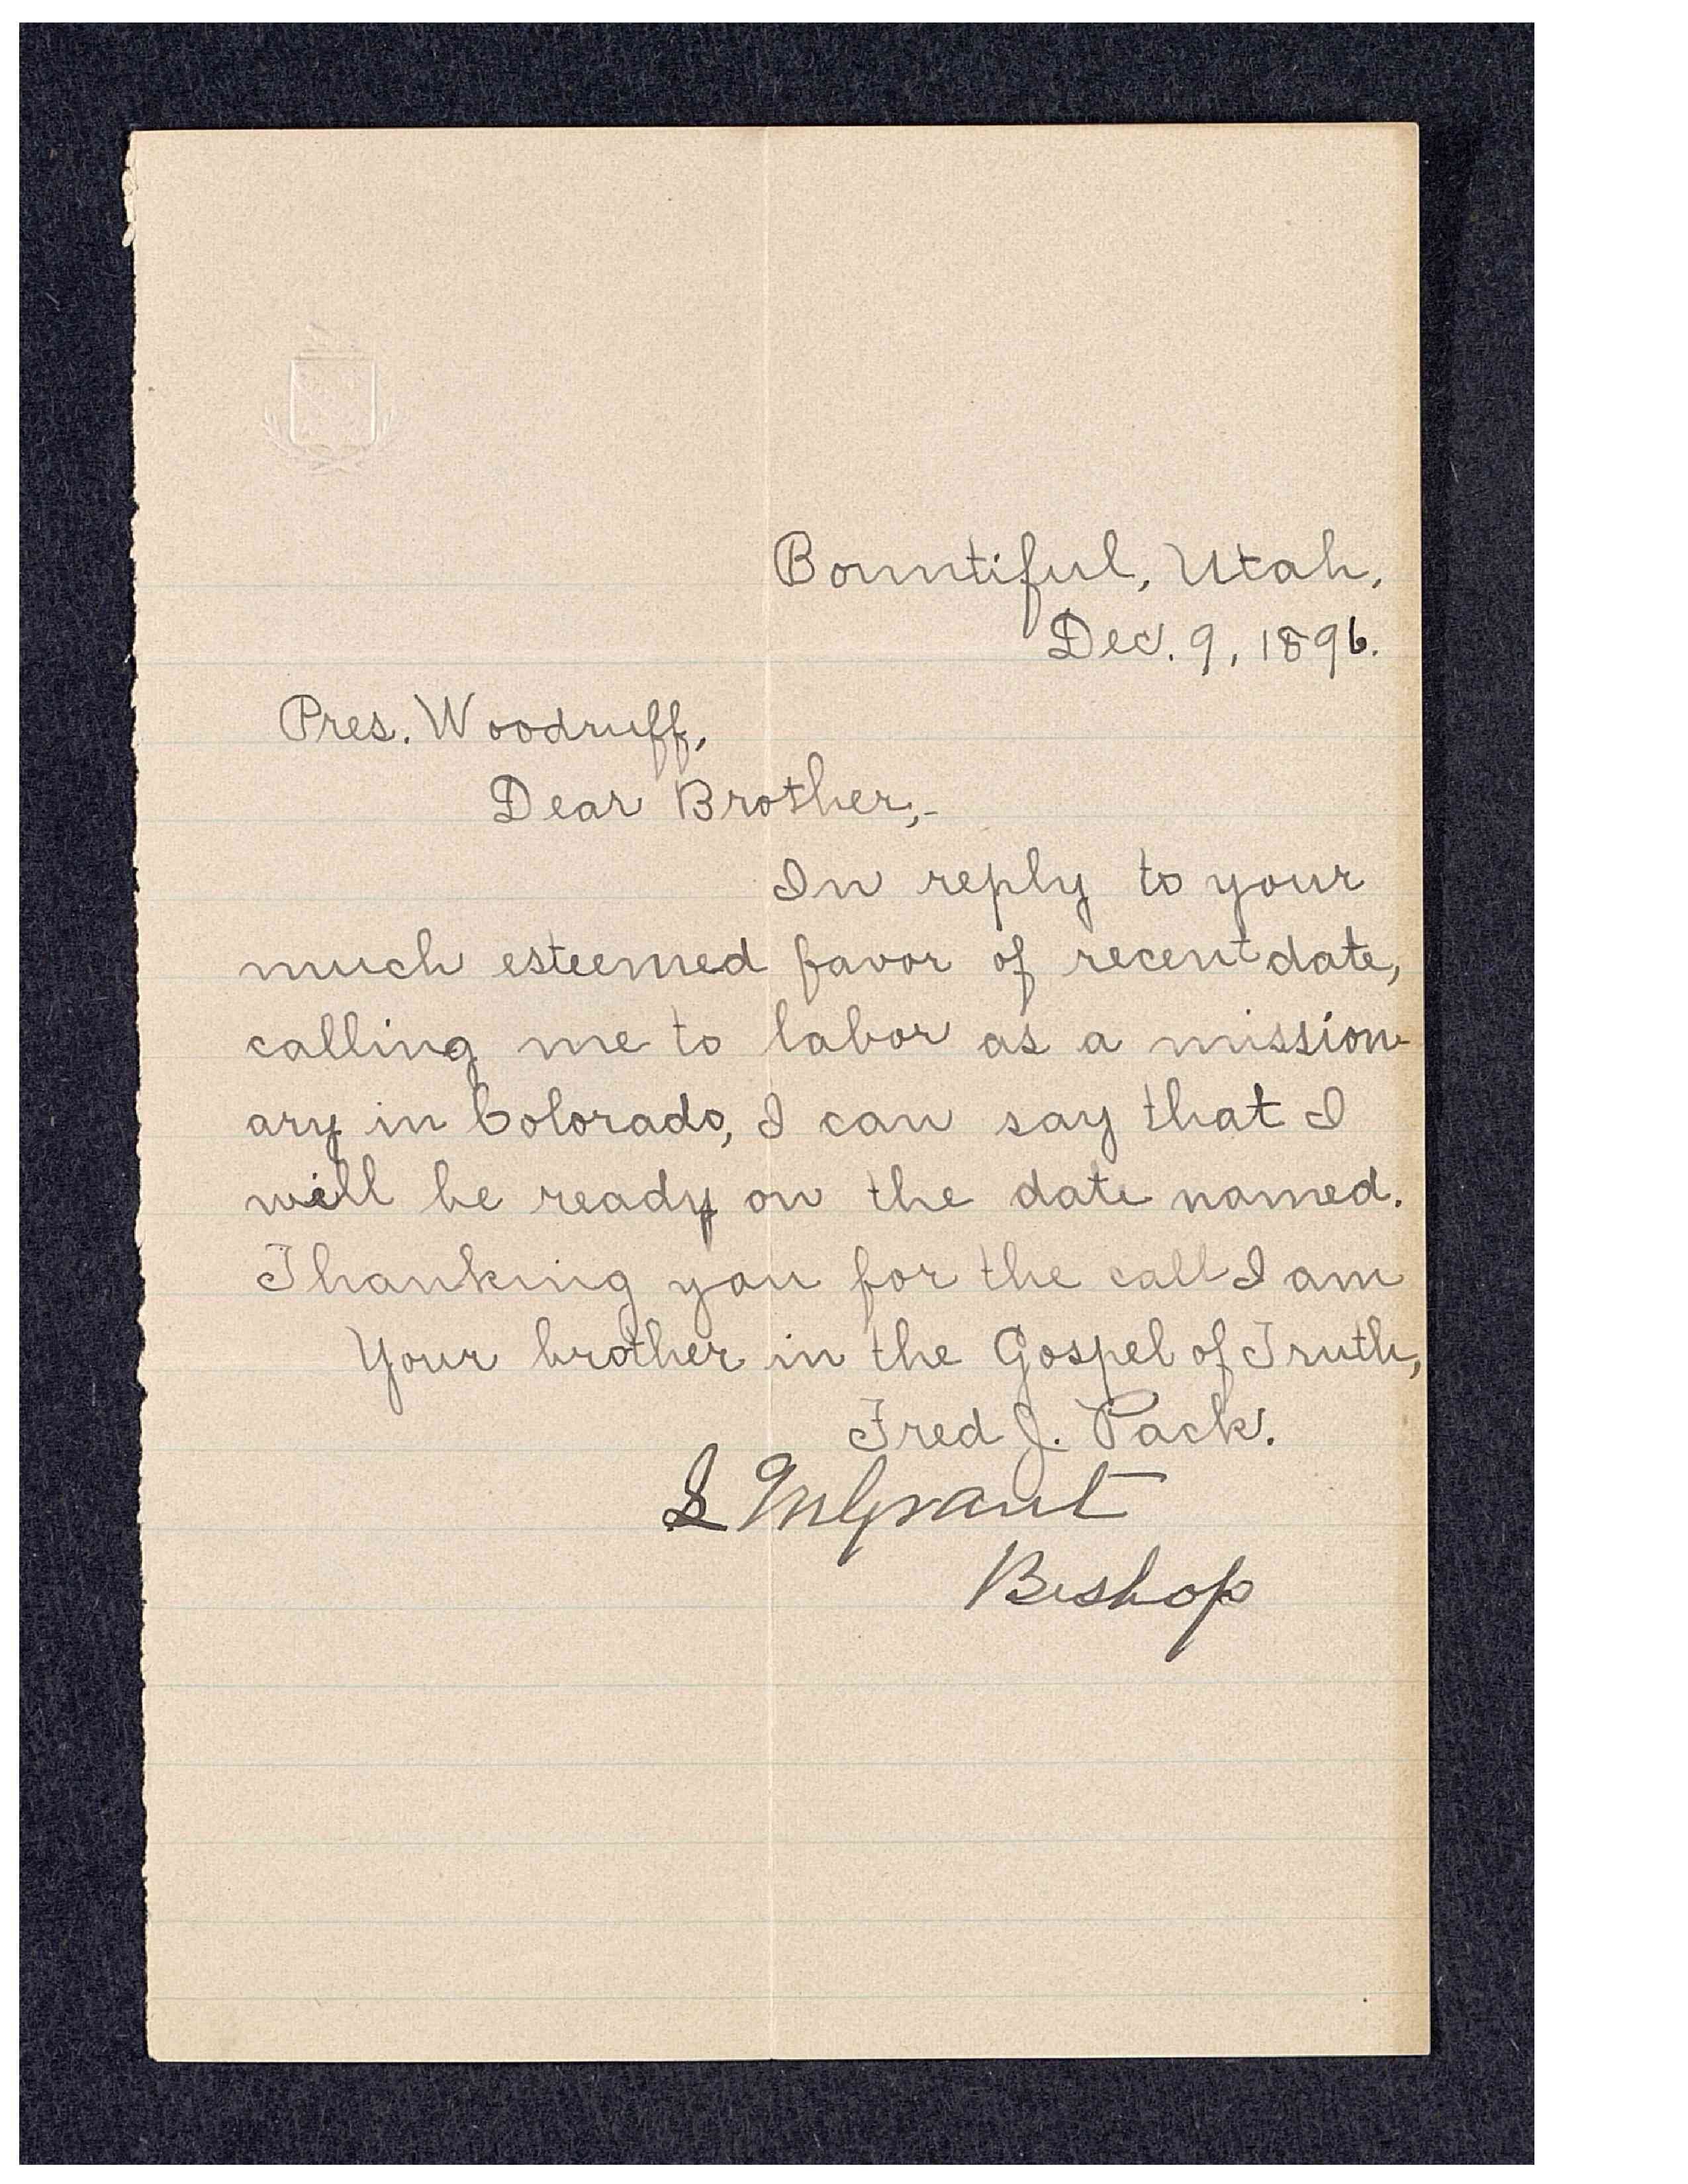 Bountiful, Utah,
Dec. 9, 1896.
Pres. Woodruff,
Dear Brother,-
In reply to your
much esteemed favor of recent date,
calling me to labor as a mission-
ary in Colorado, I can say that I
will be ready on the date named.
Thanking you for the call I am
Your brother in the Gospel of Truth,
Fred J. Pack.
Grant
Bishop